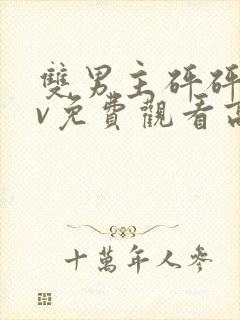 雙男主砰砰
v免費觀看高
十萬年人參